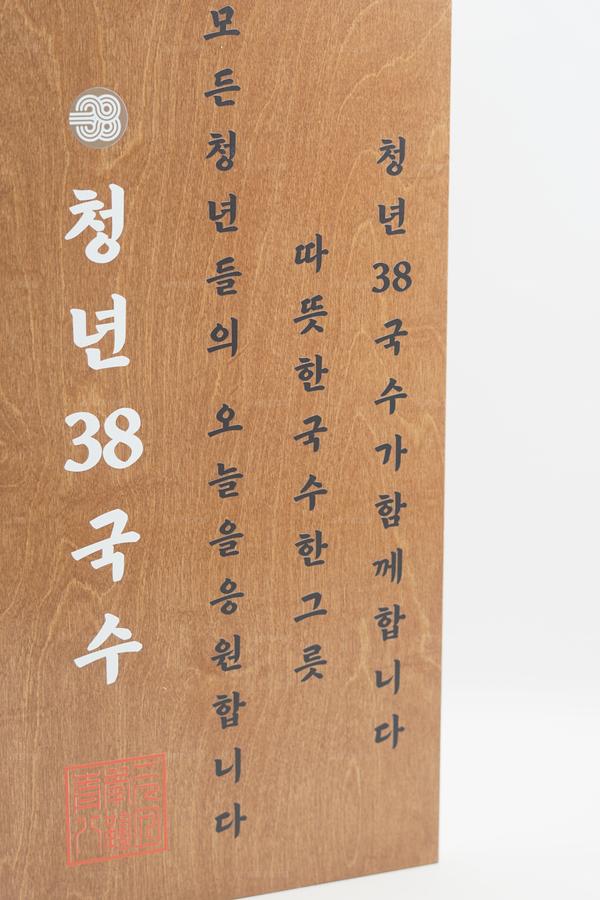 청년38국수
모든청년들의 오늘을응원합니다
따뜻한국수한그릇
청년38국수가함께합니다